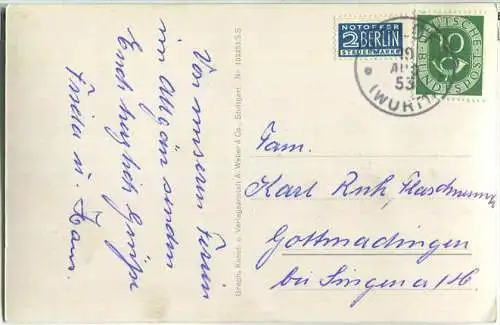 Von unserm Ferien
im Allgäu senden
Euch herzlich Grüße
Frieda u. Hans.
Graph. Kunst- u. Verlagsanstalt A. Weber & Co., Stuttgart. Nr.
NOTOPFER
2 BERLIN
STEUERMARKE
DEUTSCHE
BUNDESPOST
10
19
53
(WÜRTT)
Fam.
Karl Ruh, Flaschnerei
Gottmadingen
bei Singen a/H.